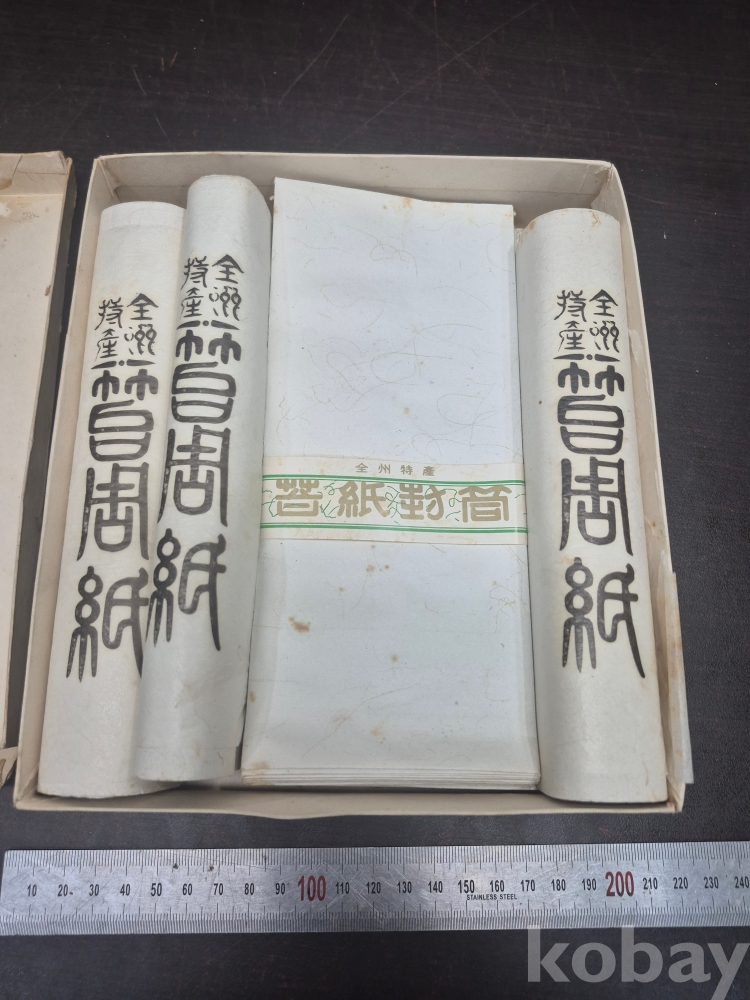 全州
特產
苔周紙
全州
特產
苔周紙
全州特產
苔紙封筒
全州
特產
苔周紙
10 20 30 40 50 60 70 80 90 100 110 120 130 140 150 160 170 180 190 200 210 220 230 240
STAINLESS STEEL
kobay